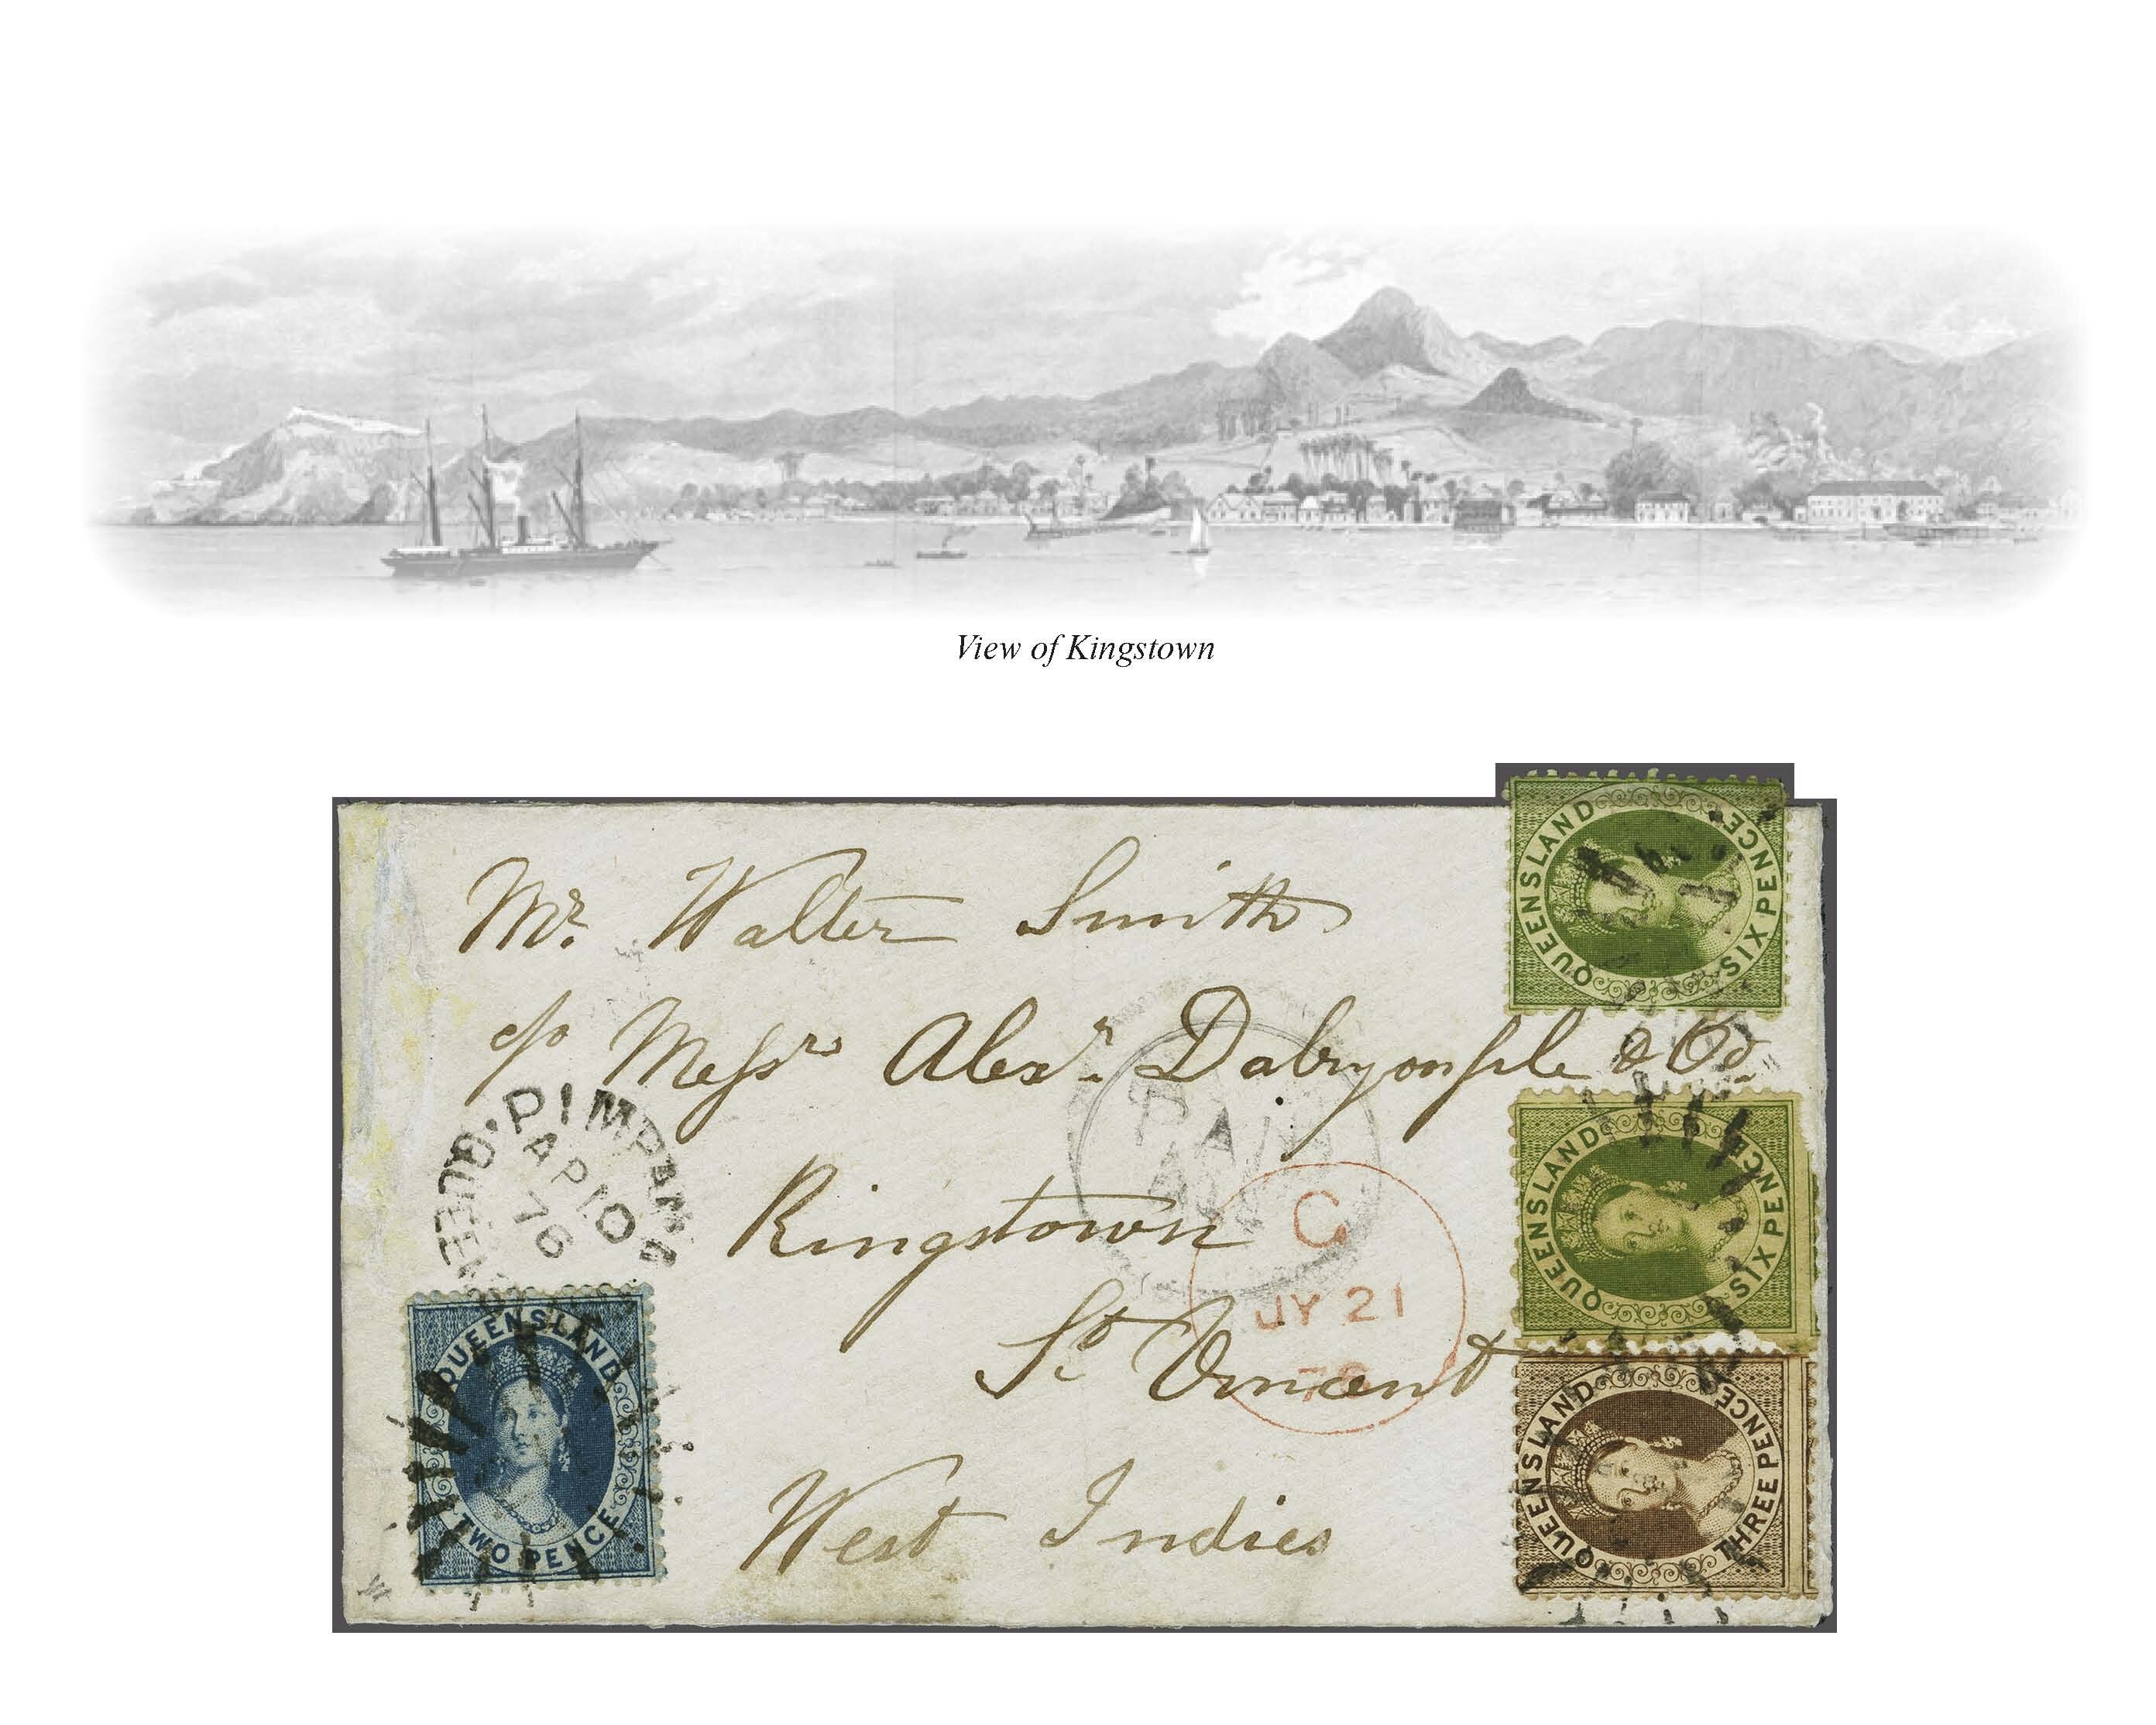 View of Kingstown
QUEENSLAND
SIX PENCE
Mr. Walter Smith
c/o Messrs Alexr. Dalrymple & Co.
QUEENSLAND
SIX PENCE
PIMPAMA
AP 10
76
PAID
Kingstown
C
JY 21
St Vincent
QUEENSLAND
TWO PENCE
QUEENSLAND
THREE PENCE
West Indies